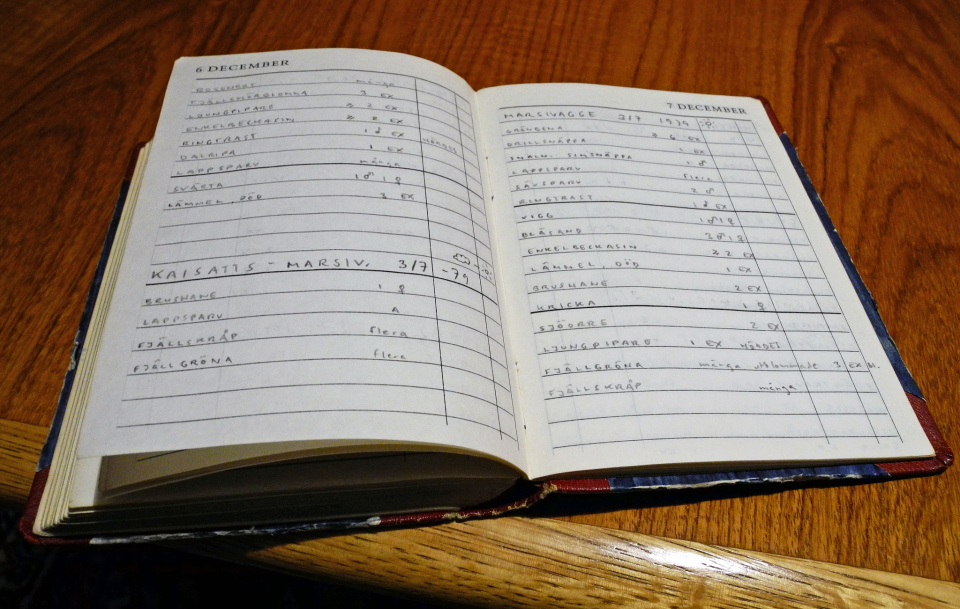 6 DECEMBER
BRUSHANE många
FJÄLLSKÄRSNÄPPA 3 EX
LJUNGPIPARE 2 EX
ENKELBECKASIN 2 EX
RINGTRAST 1♂ EX
DALRIPA 1 EX HÖRDES
LAPPSPARV många
SVÄRTA 1♂ 1♀
LÄMMEL, DÖD 3 EX
KAISATTS - MARSIV. 3/7 -79
BRUSHANE 1 ♀
LAPPSPARV A
FJÄLLSKRÅP flera
FJÄLLGRÖNA flera
7 DECEMBER
MARSIVAGGE 3/7 1979
DRILLSNÄPPA 1 EX
SMALN. SIMSNÄPPA 1 ♂
LAPPSPARV flera
SÄVSPARV 2 ♂
RINGTRAST 1♂ EX
VIGG 1♂ 1♀
BLÄSAND 3♂ 1♀
ENKELBECKASIN 2 EX
LÄMMEL, DÖD 1 EX
BRUSHANE 2 EX
KRICKA 1 ♀
SJÖORRE 2 EX
LJUNGPIPARE 1 EX HÖRDES
FJÄLLGRÖNA många 3 EX
FJÄLLSKRÅP många